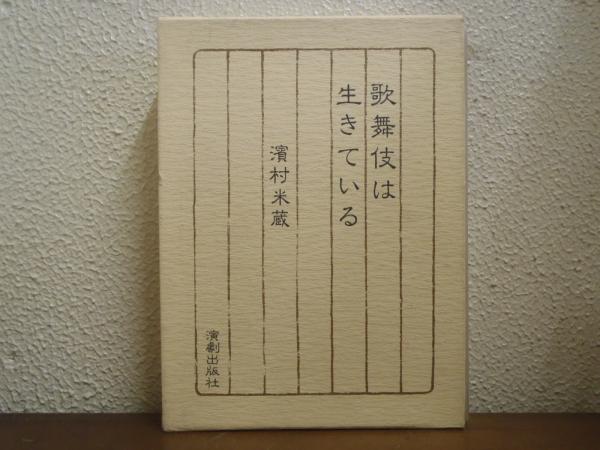 歌舞伎は
生きている
濱村米蔵
演劇出版社